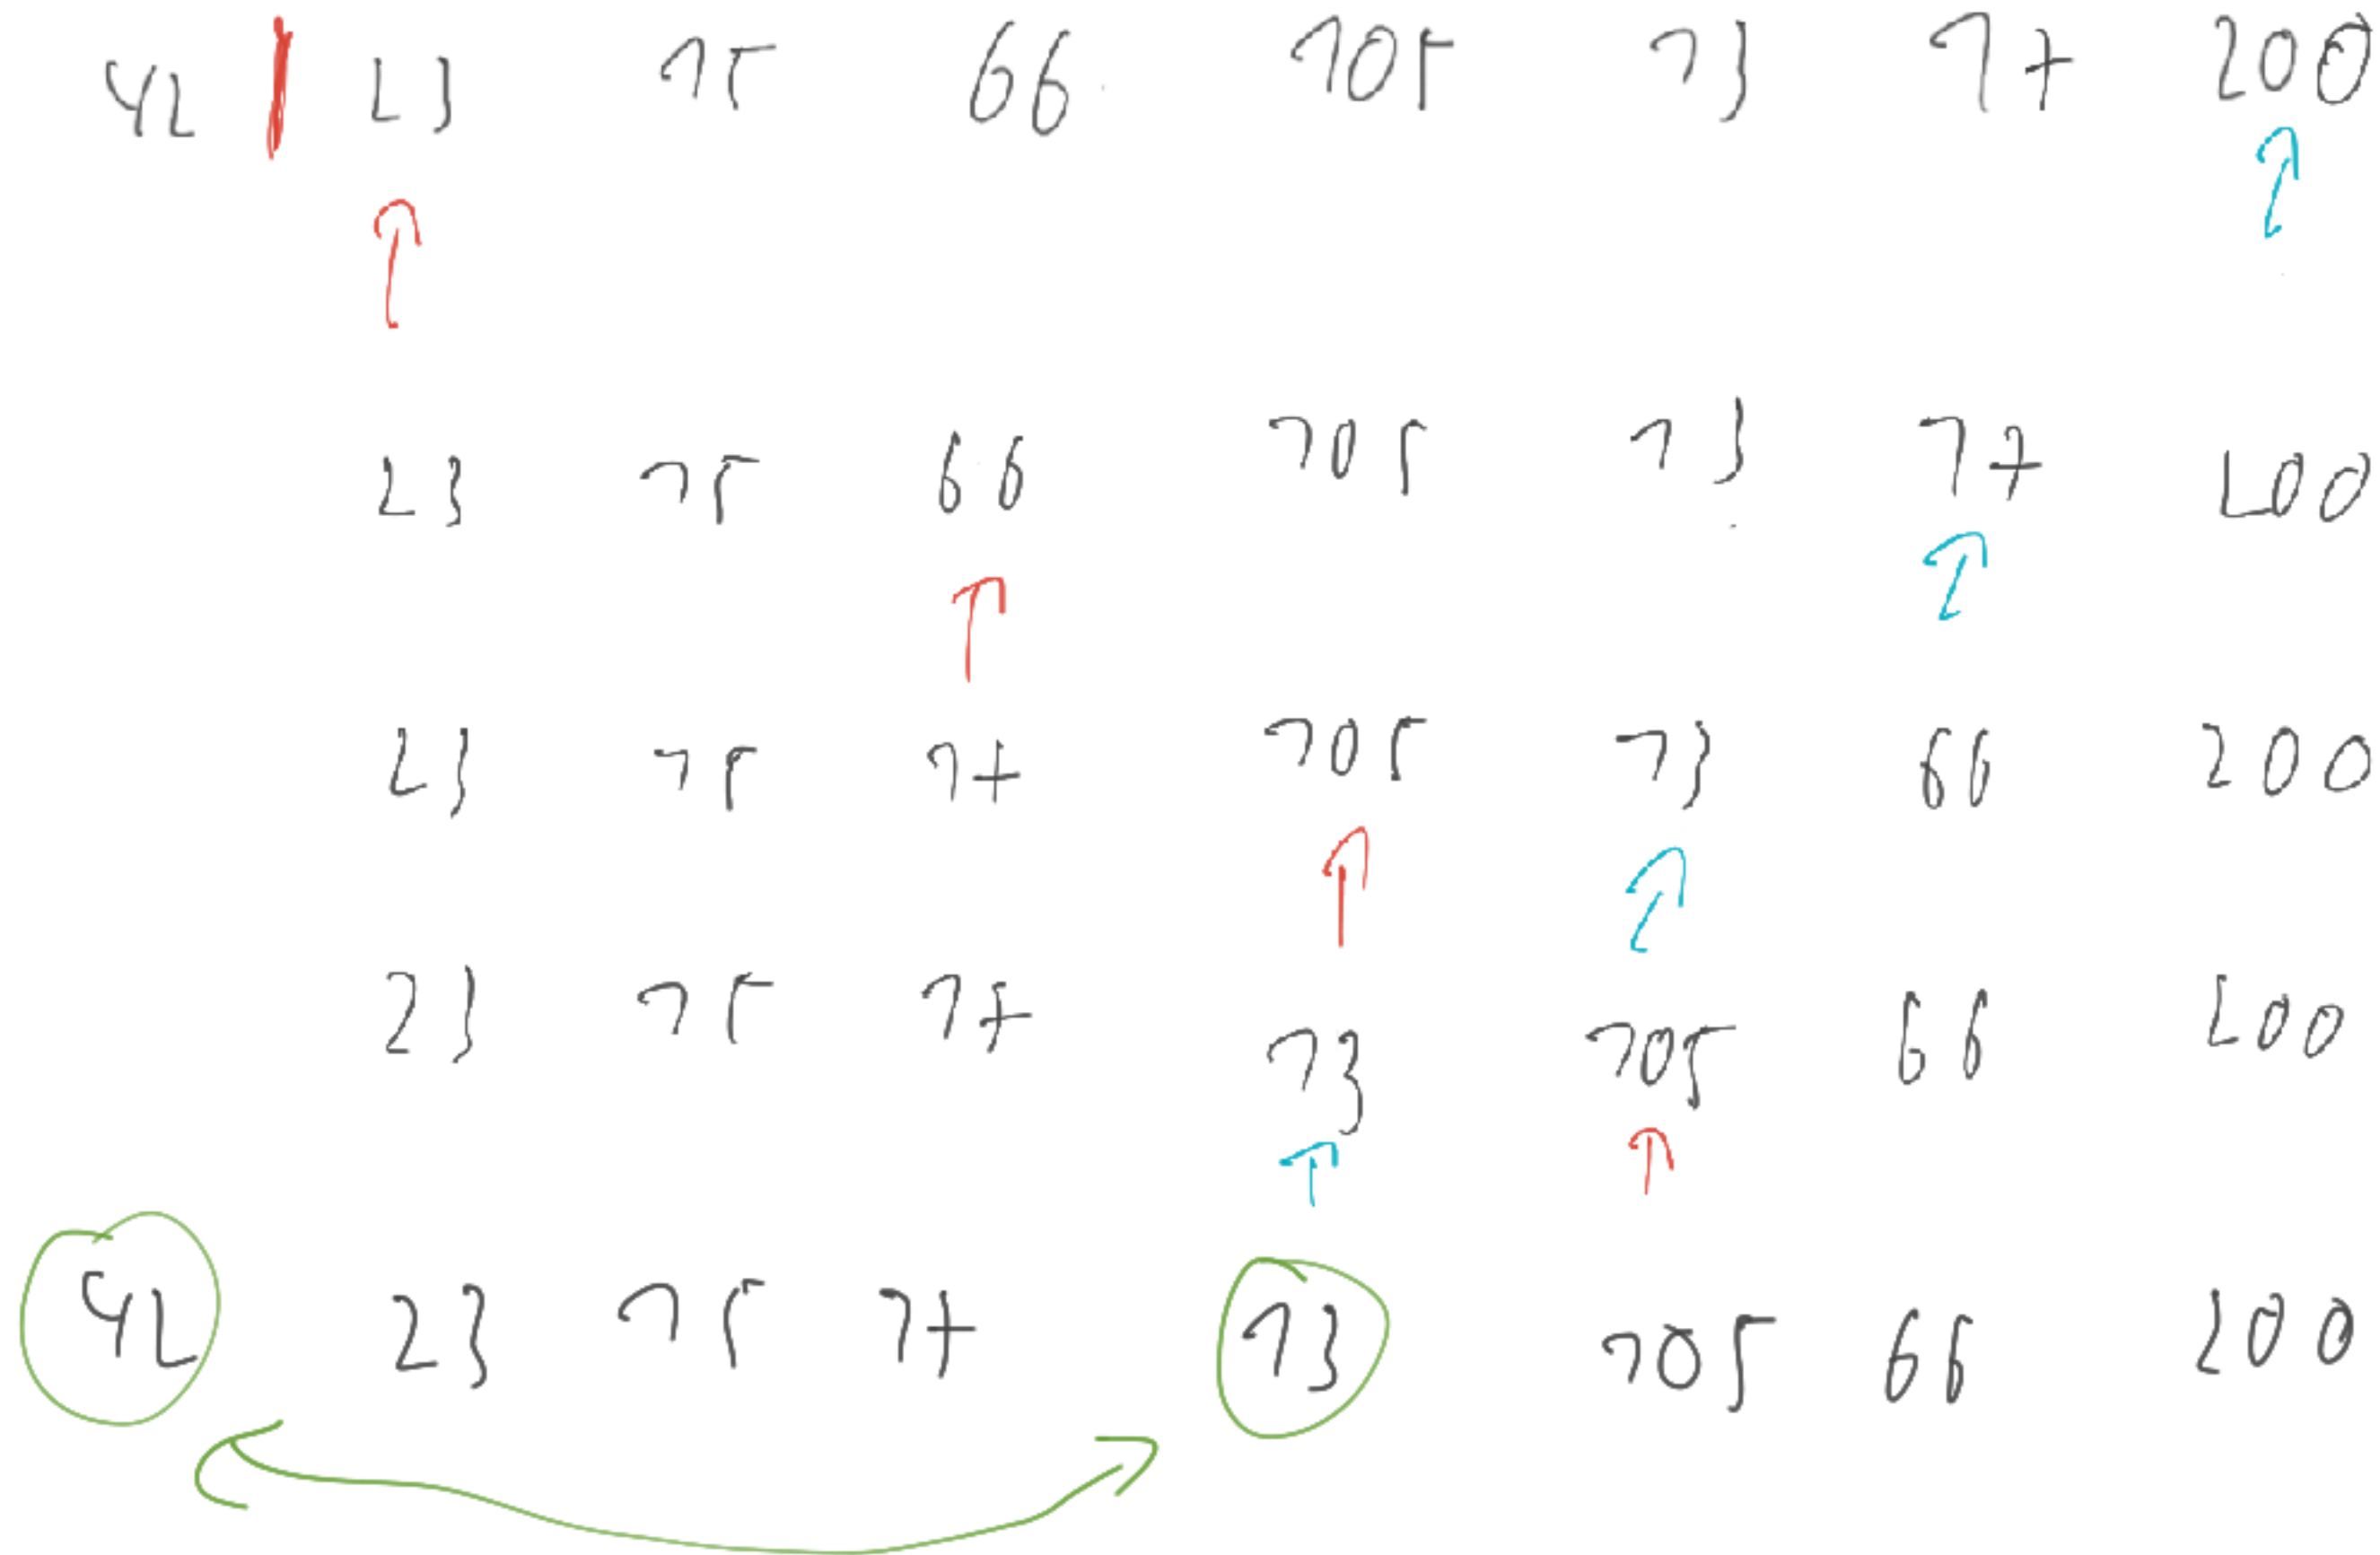 42 23 15 66 105 13 17 200
23 15 66 105 13 17 200
23 15 17 105 13 66 200
23 15 17 13 105 66 200
42 23 15 17 13 105 66 200